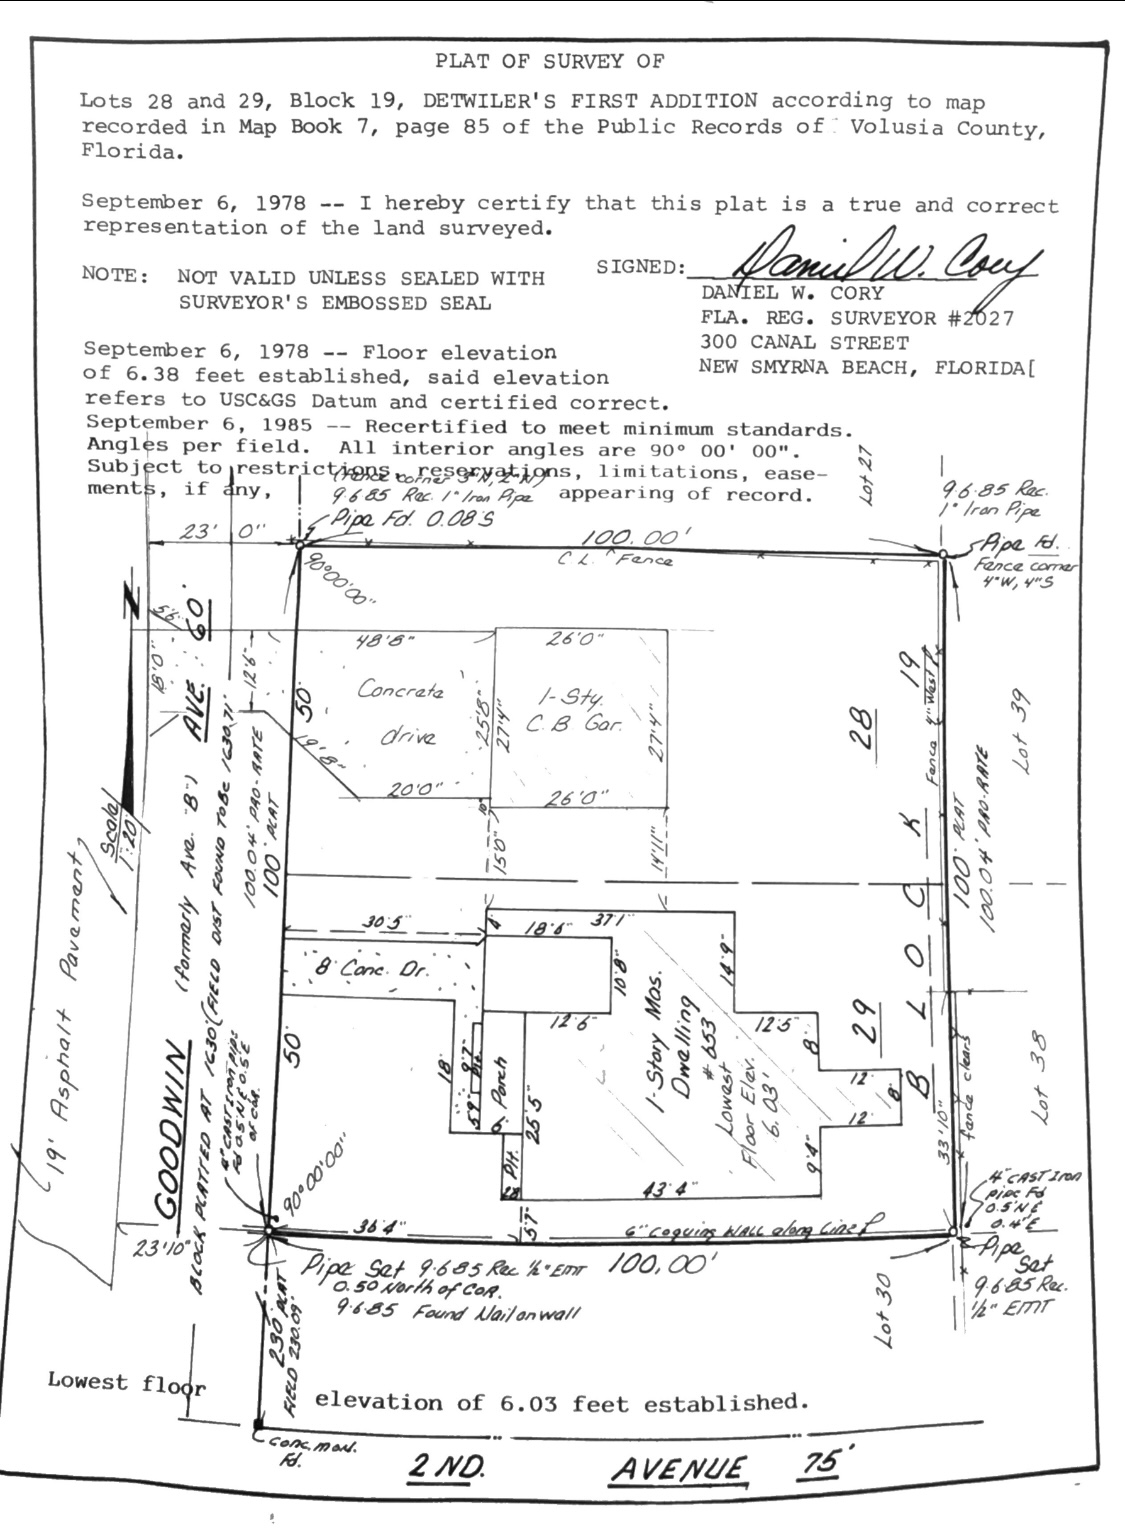 PLAT OF SURVEY OF
Lots 28 and 29, Block 19, DETWILER'S FIRST ADDITION according to map
recorded in Map Book 7, page 85 of the Public Records of Volusia County,
Florida.
September 6, 1978 -- I hereby certify that this plat is a true and correct
representation of the land surveyed.
NOTE: NOT VALID UNLESS SEALED WITH
SURVEYOR'S EMBOSSED SEAL
SIGNED: Daniel W. Cory
DANIEL W. CORY
FLA. REG. SURVEYOR #2027
300 CANAL STREET
NEW SMYRNA BEACH, FLORIDA[
September 6, 1978 -- Floor elevation
of 6.38 feet established, said elevation
refers to USC&GS Datum and certified correct.
September 6, 1985 -- Recertified to meet minimum standards.
Angles per field. All interior angles are 90° 00' 00".
Subject to restrictions, reservations, limitations, ease-
ments, if any, appearing of record.
(Fence corner 3"N, 2"W)
9·6·85 Rec. 1" Iron Pipe
Pipe Fd. 0.08'S
Lot 27
9·6·85 Rec.
1" Iron Pipe
Pipe Fd.
Fence corner
4"W, 4"S
23' 0"
100.00'
C.L. Fence
90°00'00"
N
Scale
1":20'
18'0"
12'6"
AVE. 60'
48'8"
26'0"
Concrete
drive
1-Sty.
C.B Gar.
50'
25'8"
27'4"
27'4"
19'8"
20'0"
26'0"
10"
15'0"
14'11"
28
19
Fence 4" West
Lot 39
100' PLAT
100.04' PRO-RATE
100.04' PRO-RATE
100' PLAT
19' Asphalt Pavement
GOODWIN
(formerly Ave. "B")
BLOCK PLATTED AT 1630' (FIELD DIST FOUND TO BE 1630.71'
4" CAST Iron pipe
Fd 0.5'N & 0.5'E
of COR.
30'5"
4'
18'6"
37'1"
8' Conc. Dr.
10'8"
14'9"
12'6"
12'5"
8'
12'
8'
12'
9'4"
1-Story Mas.
Dwelling
# 653
Lowest
Floor Elev.
6.03'
29
BLOCK
50'
18'
9'7"
5'9"
Porch
25'5"
PH.
43'4"
33'10"
fence clears
Lot 38
90°00'00"
4" CAST Iron
pipe Fd
0.5'N &
0.4'E
36'4"
5'7"
6" Coquina WALL along Line
23'10"
Pipe Set 9·6·85 Rec ½" EMT 100.00'
0.50 North of COR.
9·6·85 Found Nail on wall
Pipe
Set
9·6·85 Rec.
½" EMT
Lot 30
230' PLAT
FIELD 230.09'
Lowest floor elevation of 6.03 feet established.
Conc. mon.
Fd.
2 ND. AVENUE 75'